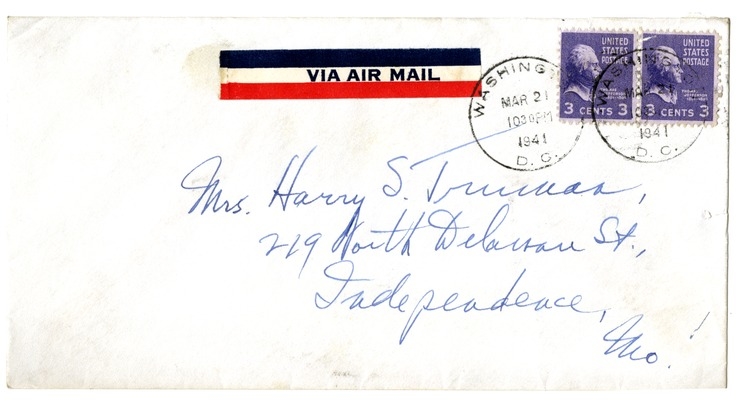 VIA AIR MAIL
UNITED STATES POSTAGE
THOMAS JEFFERSON
3 CENTS 3
UNITED STATES POSTAGE
THOMAS JEFFERSON
3 CENTS 3
WASHINGT
MAR 21
1030PM
1941
D. C.
WASHINGTON
MAR 21
1941
D. C.
Mrs. Harry S. Truman,
219 North Delaware St.,
Independence,
Mo.!